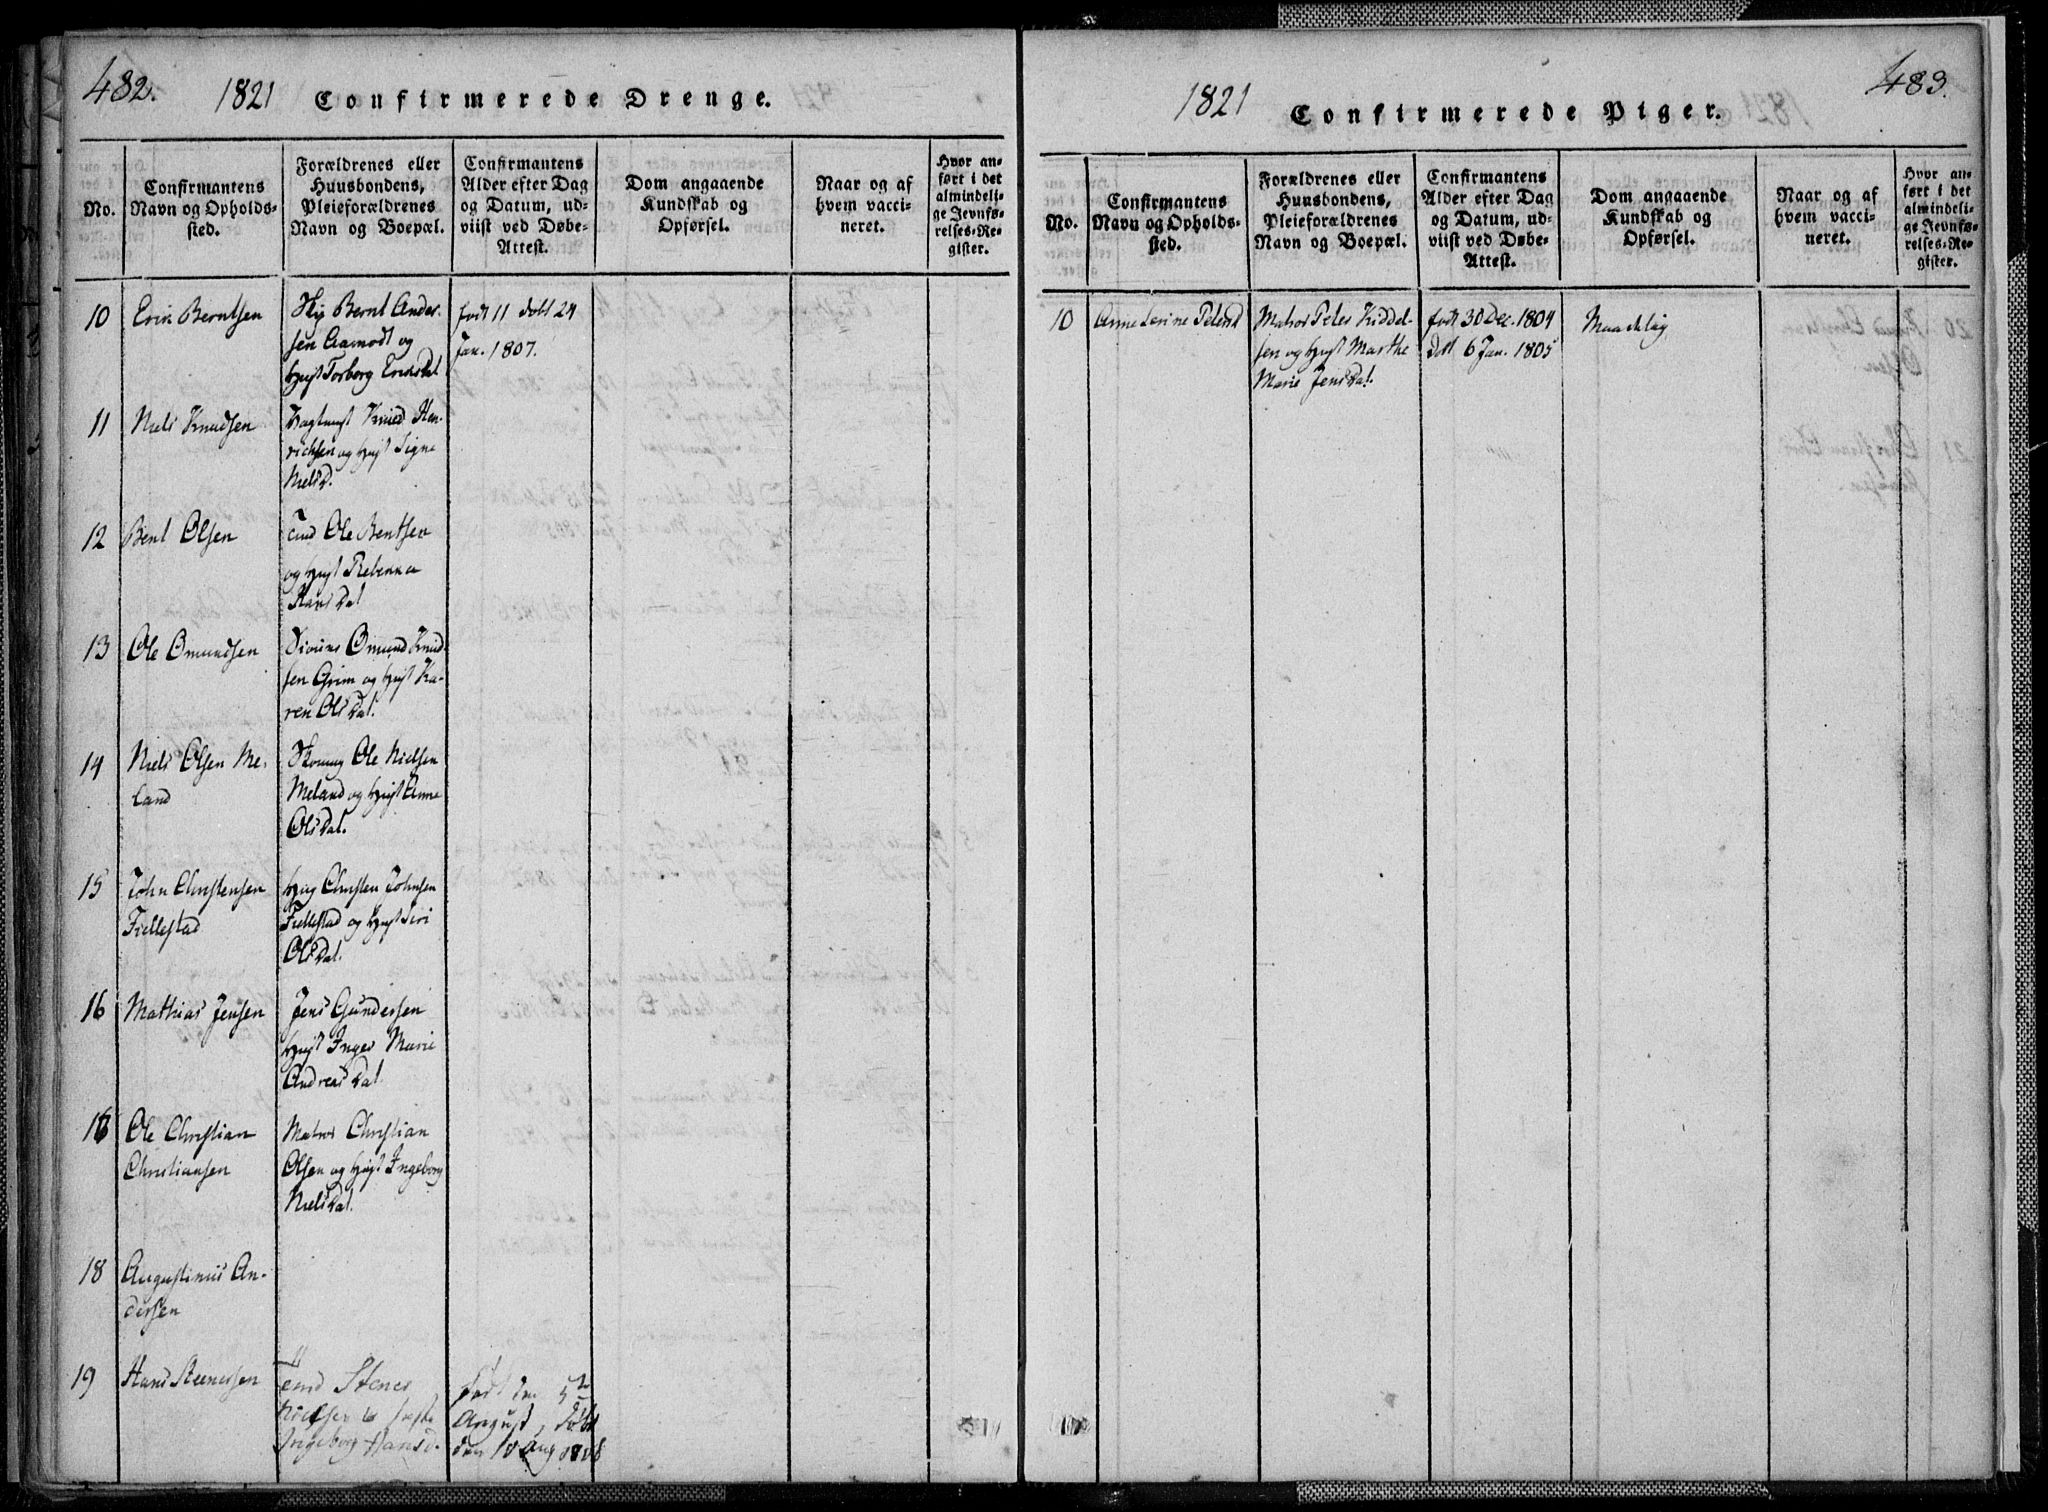 482.
1821 Confirmerede Drenge.
No.
Confirmantens
Navn og Opholds-
sted.
Forældrenes eller
Huusbondens,
Pleieforældrenes
Navn og Boepæl.
Confirmantens
Alder efter Dag
og Datum, ud-
viist ved Døbe-
Attest.
Dom angaaende
Kundskab og
Opførsel.
Naar og af
hvem vacci-
neret.
Hvor an-
ført i det
almindeli-
ge Jevnfø-
relses-Re-
gister.
10 Erik Berntsen
Bernt Ander-
sen Aamodt og
Hust Torborg Eriksdat
født 11 døbt 24
Jan. 1807.
11 Niels Knudsen
Knud Hen-
richsen og Hust Signe
Nielsd.
12 Bent Olsen
Ole Bentsen
og Hust Rebecca
Hansdat
13 Ole Omundsen
Omund Knud-
sen Grim og Hust Ka-
ren Olsdat.
14 Niels Olsen Me-
land
Ole Nielsen
Meland og Hust Anne
Olsdat.
15 John Christensen
Fiellestad
Christen Johnsen
Fiellestad og Hust Siri
Olsdat.
16 Mathias Jensen
Jens Gundersen
Hust Inger Marie
Andreasdat.
Ole Christian
Christiansen
Matros Christian
Olsen og Hust Ingeborg
Nielsdat.
18 Augustinus An-
dersen
19 Hans Steenersen
Stener
Nielsen
Ingeborg Hansd.
født den 5te
August, døbt
den 10 Aug
483.
1821 Confirmerede Piger.
No.
Confirmantens
Navn og Opholds-
sted.
Forældrenes eller
Huusbondens,
Pleieforældrenes
Navn og Boepæl.
Confirmantens
Alder efter Dag
og Datum, ud-
viist ved Døbe-
Attest.
Dom angaaende
Kundskab og
Opførsel.
Naar og af
hvem vacci-
neret.
Hvor an-
ført i det
almindeli-
ge Jevnfø-
relses-Re-
gister.
10 Anne Serine Petersd
Matros Peter Kiddel-
sen og Hust Marthe
Marie Jensdat.
født 30 Dec. 1804
døbt 6 Jan. 1805
Maadelig